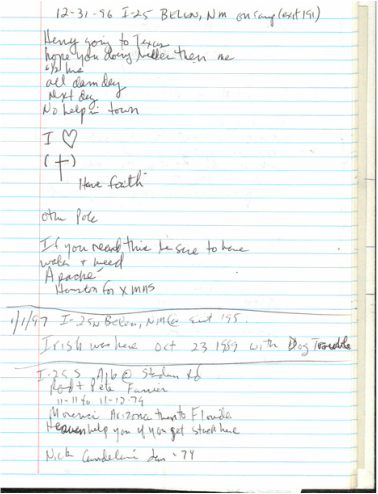 12-31-96 I-25 Belen, NM on ramp (exit 191)
Henry going to Texas
hope you doing better then me
all damn day
Next day
No help in town
I ♡
(†)
Have faith
other Pole
If you read this be sure to have
water + weed
Apache
Houston for Xmas
1/1/97 I-25N Belen, NM @ exit 195
Irish was here Oct 23 1989 with Dog Trouble
I-25 S. Alb @ Stadium
Rod + Pete
11-11 to 11-12-79
Morenci Arizona then to Florida
Heaven help you if you get stuck here
Nick Jan - 79